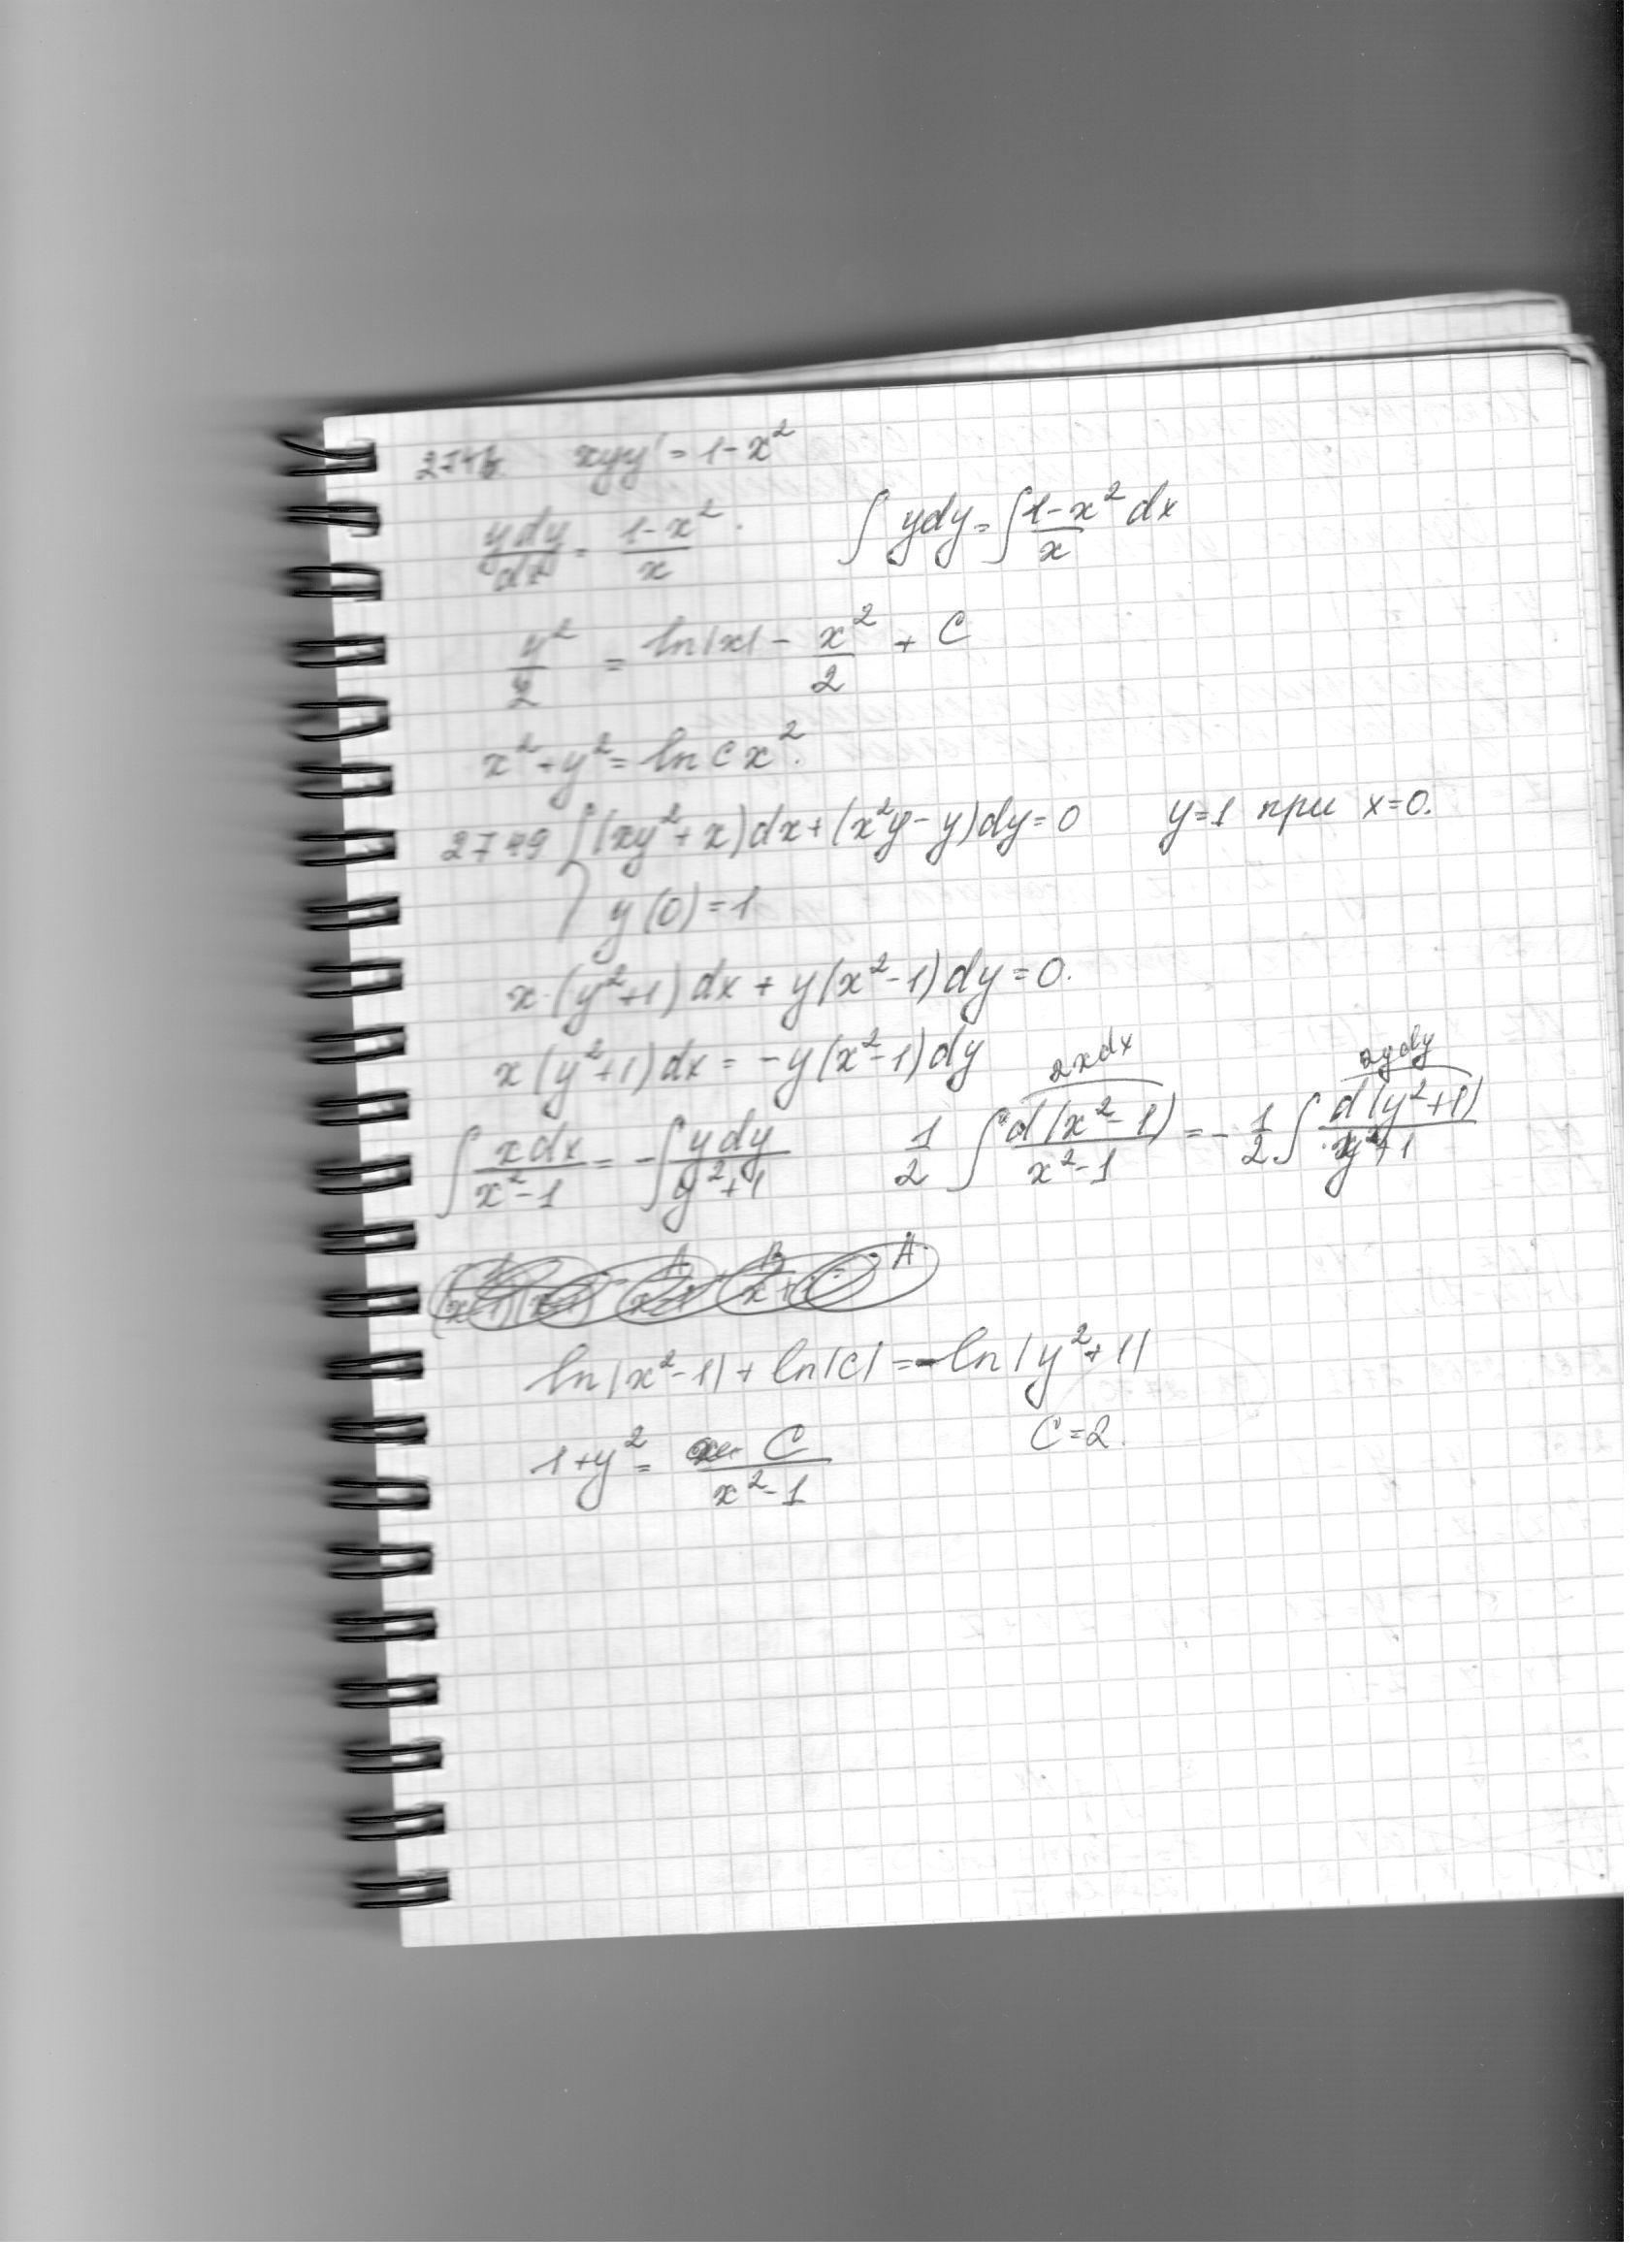 2746 xyy' = 1-x²
ydy/dx = 1-x²/x. ∫ydy = ∫1-x²/x dx
y²/2 = ln|x| - x²/2 + C
x²+y² = ln C x².
2749 {(xy²+x)dx+(x²y-y)dy=0 y=1 при x=0.
y(0)=1
x·(y²+1)dx + y(x²-1)dy=0.
x(y²+1)dx = -y(x²-1)dy
2xdx 2ydy
∫xdx/x²-1 = -∫ydy/y²+1 1/2 ∫d(x²-1)/x²-1 = -1/2 ∫d(y²+1)/y²+1
ln|x²-1| + ln|C| = -ln|y²+1|
1+y² = C/x²-1 C=2.